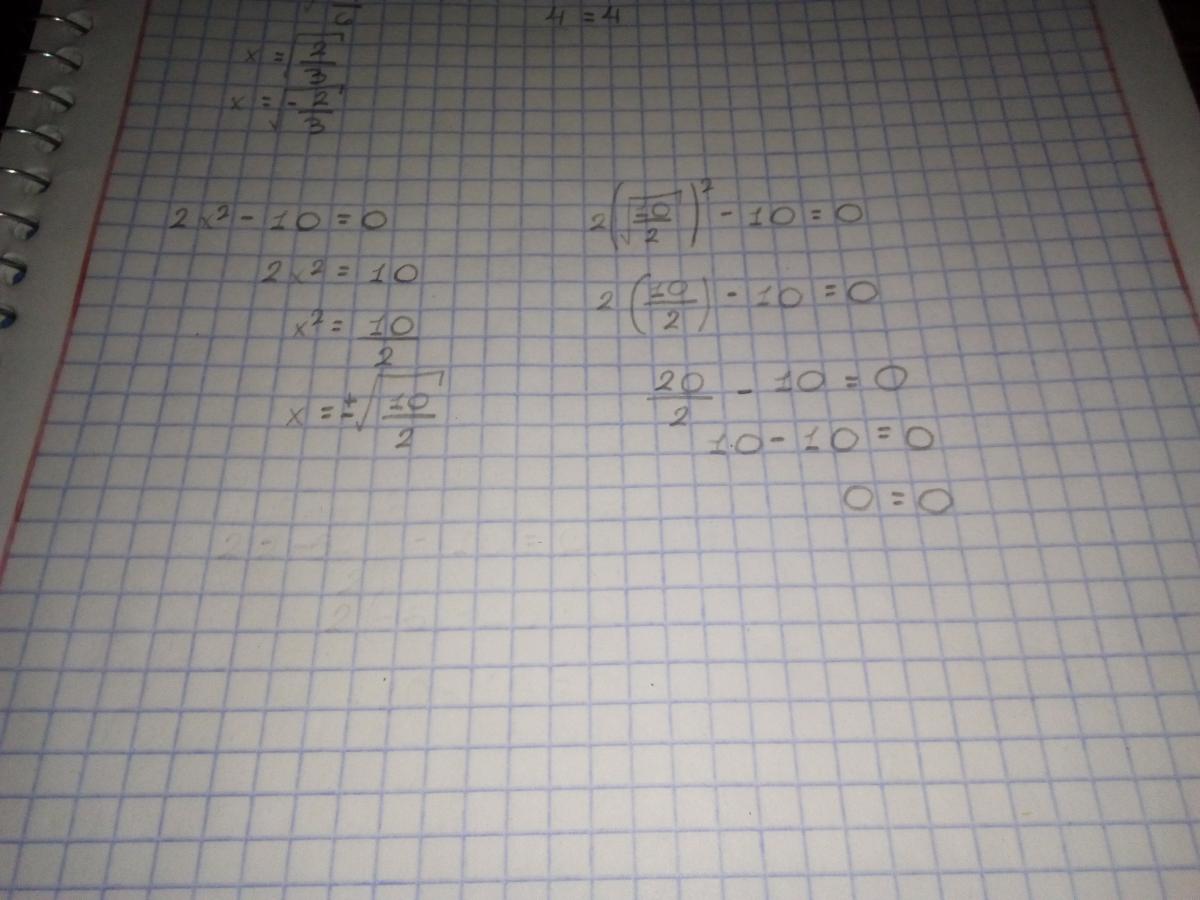 6
4 = 4
x = √(2/3)
x = √(-2/3)
2x² - 10 = 0
2x² = 10
x² = 10/2
x = ±√(10/2)
2(√(10/2))² - 10 = 0
2(10/2) - 10 = 0
20/2 - 10 = 0
10 - 10 = 0
0 = 0